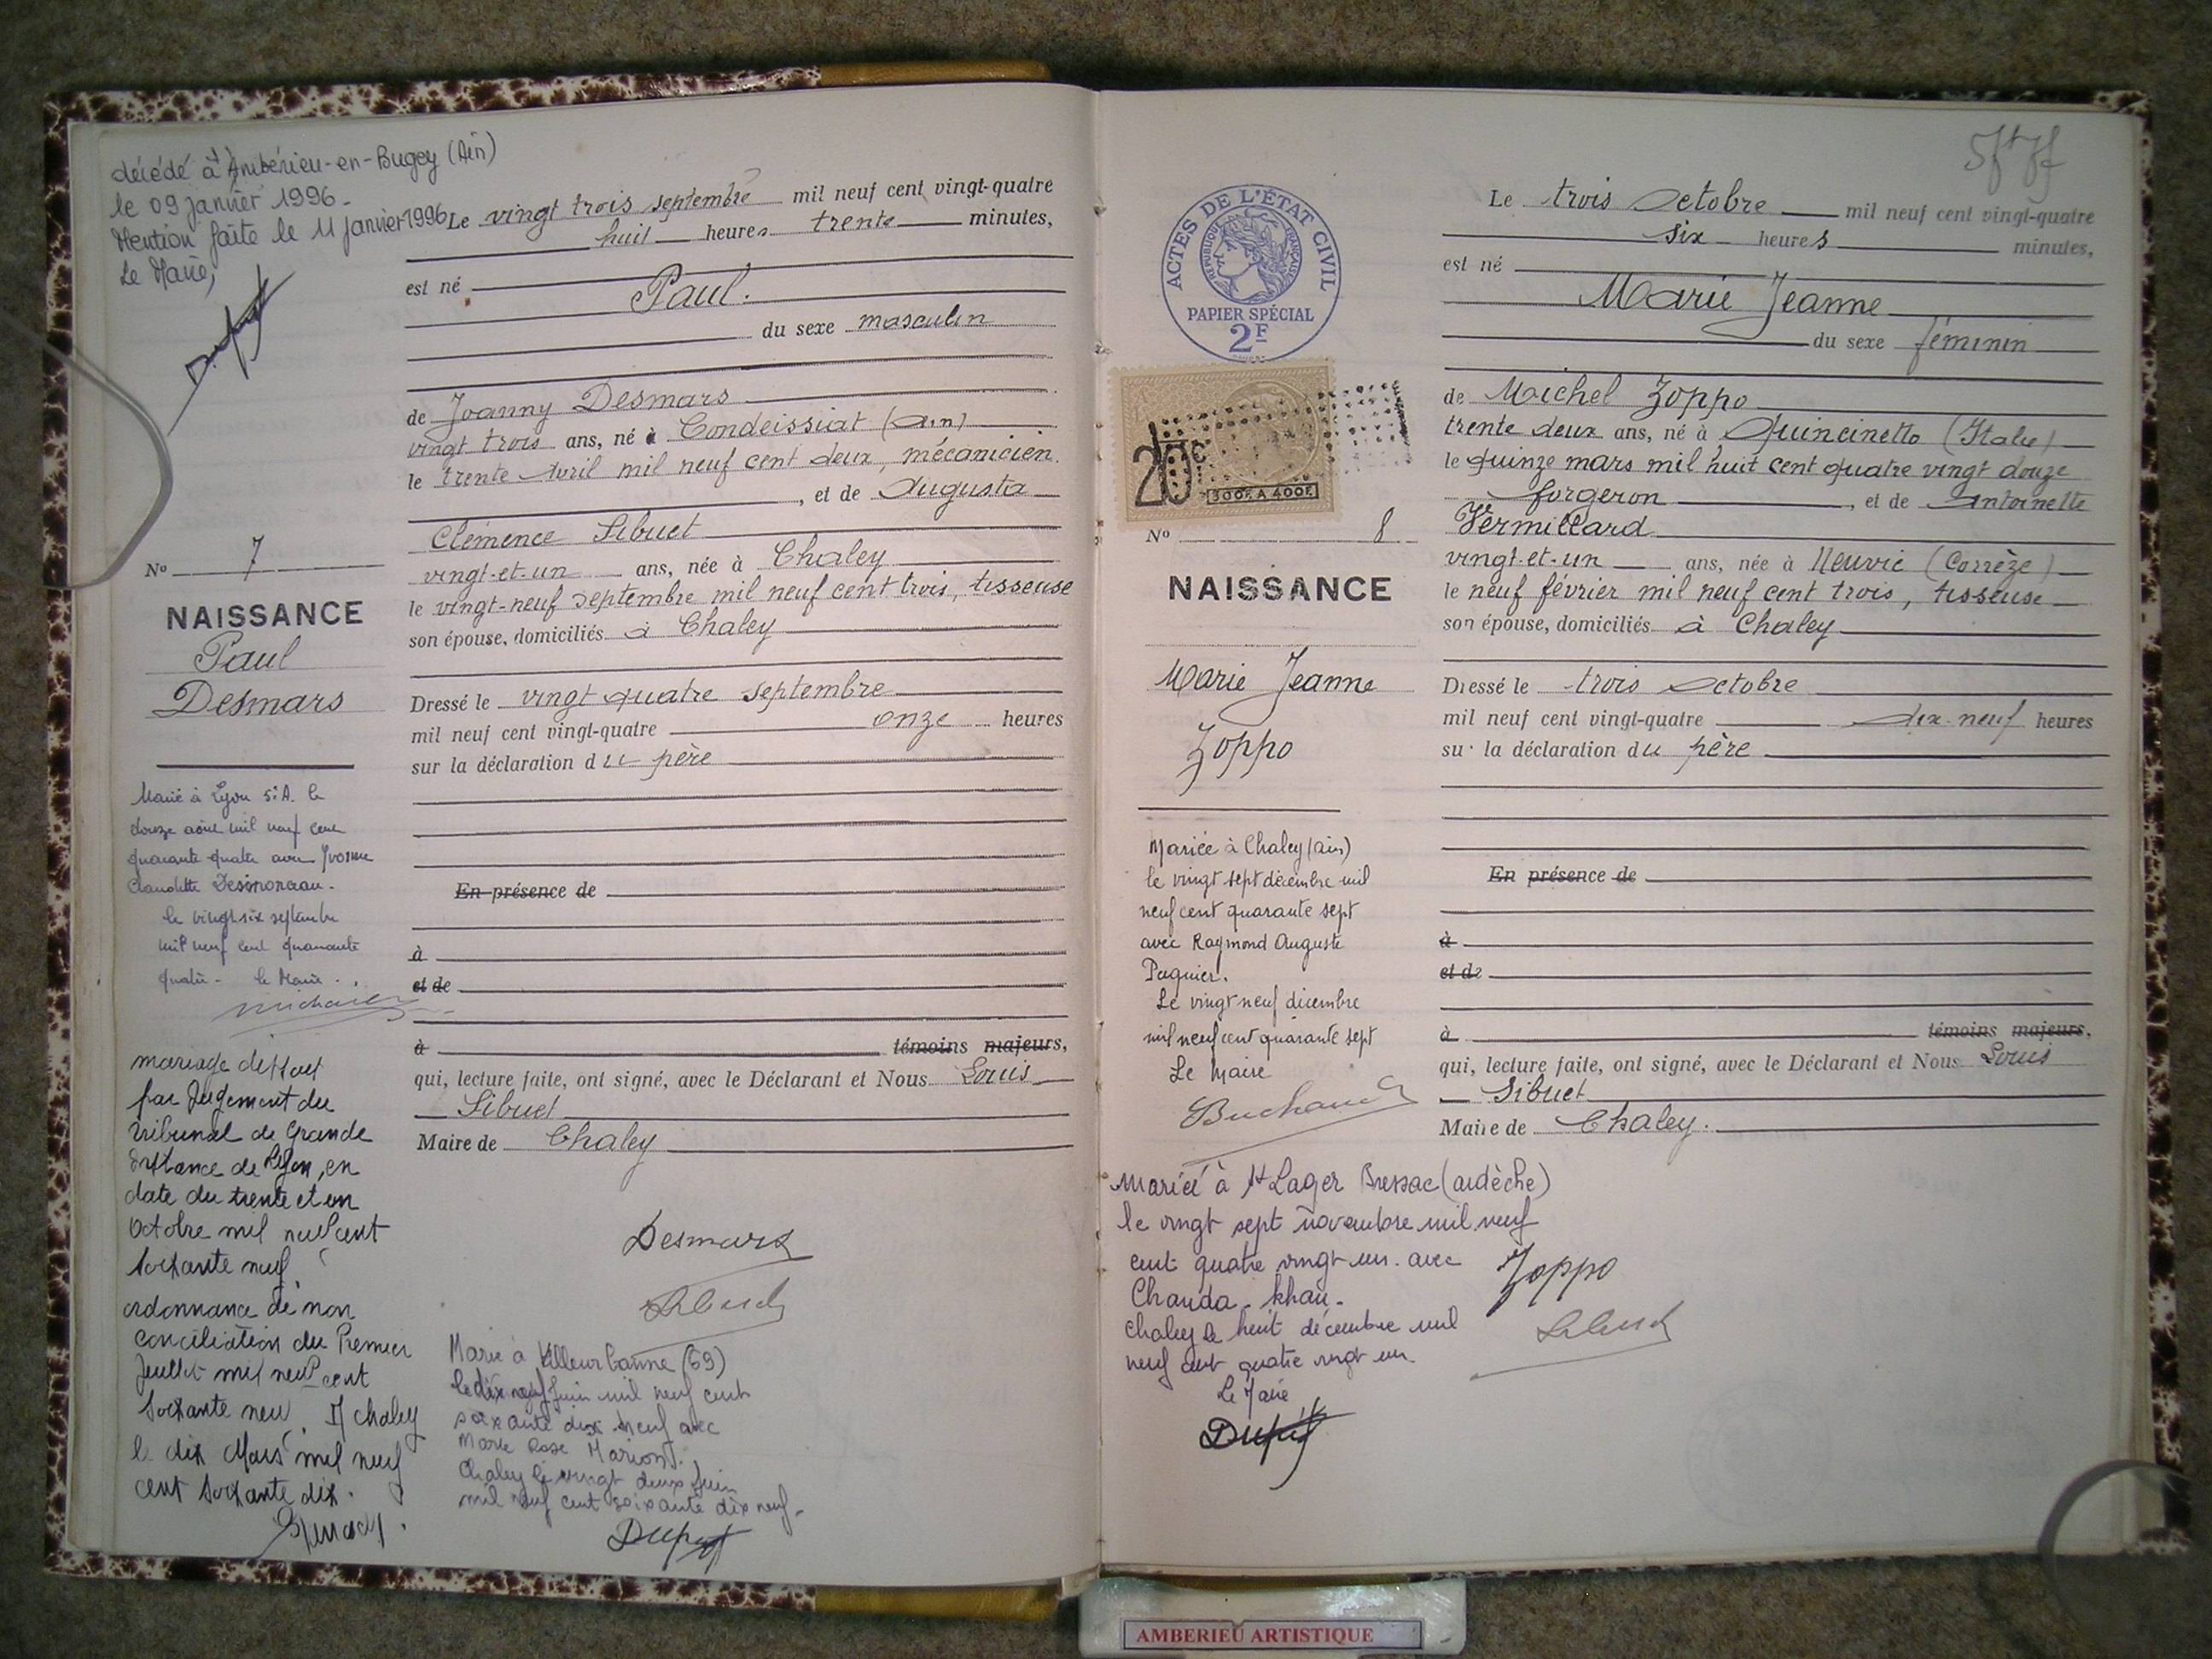 décédé à Ambérieu-en-Bugey (Ain)
le 09 janvier 1996.
Mention faite le 11 janvier 1996
Le Maire,
N° 7
NAISSANCE
Paul
Desmars
Marié à Lyon 5e A. le
douze août mil neuf cent
quarante quatre avec Yvonne
Claudette
le vingt six septembre
mil neuf cent quarante
quatre - le Maire.
mariage dissout
par Jugement du
tribunal de Grande
Instance de Lyon, en
date du trente et un
Octobre mil neuf cent
soixante neuf
ordonnance de non
conciliation du Premier
Juillet mil neuf cent
soixante neuf. A chaley
le dix Mars mil neuf
cent soixante dix.
Le vingt trois septembre mil neuf cent vingt-quatre
huit heures trente minutes,
est né
Paul.
du sexe masculin
de Joanny Desmars
vingt trois ans, né à Condeissiat (Ain)
le trente Avril mil neuf cent deux, mécanicien.
, et de Augusta
Clémence Sibuet
vingt-et-un ans, née à Chaley
le vingt-neuf septembre mil neuf cent trois, tisseuse
son épouse, domiciliés à Chaley
Dressé le vingt quatre septembre
mil neuf cent vingt-quatre onze heures
sur la déclaration du père
En présence de
à
et de
à témoins majeurs,
qui, lecture faite, ont signé, avec le Déclarant et Nous Louis
Sibuet
Maire de Chaley
Desmars
Sibuet
Marié à Villeurbanne (69)
le dix neuf juin mil neuf cent
soixante dix neuf avec
Marie Rose
Chaley le vingt deux Juin
mil neuf cent soixante dix neuf.
ACTES DE L'ÉTAT CIVIL
RÉPUBLIQUE FRANÇAISE
PAPIER SPÉCIAL
2F
20c
300F. A 400F.
N° 8
NAISSANCE
Marie Jeanne
Zoppo
Mariée à Chaley (ain)
le vingt sept décembre mil
neuf cent quarante sept
avec Raymond Auguste
Paquier.
Le vingt neuf décembre
mil neuf cent quarante sept
Le Maire
Mariée à St Lager Bressac (ardèche)
le vingt sept novembre mil neuf
cent quatre vingt un. avec
Chanda khan.
chaley le huit décembre mil
neuf cent quatre vingt un.
Le Maire
Le trois Octobre mil neuf cent vingt-quatre
six heures minutes,
est né
Marie Jeanne
du sexe féminin
de Michel Zoppo
trente deux ans, né à Quincinetto (Italie)
le quinze mars mil huit cent quatre vingt douze
forgeron , et de Antoinette
Vermillard
vingt-et-un ans, née à Neuvic (Corrèze)
le neuf février mil neuf cent trois, tisseuse
son épouse, domiciliés à Chaley
Dressé le trois Octobre
mil neuf cent vingt-quatre dix-neuf heures
sur la déclaration du père
En présence de
à
et de
à témoins majeurs,
qui, lecture faite, ont signé, avec le Déclarant et Nous Louis
Sibuet
Maire de Chaley.
Zoppo
Sibuet
AMBERIEU ARTISTIQUE